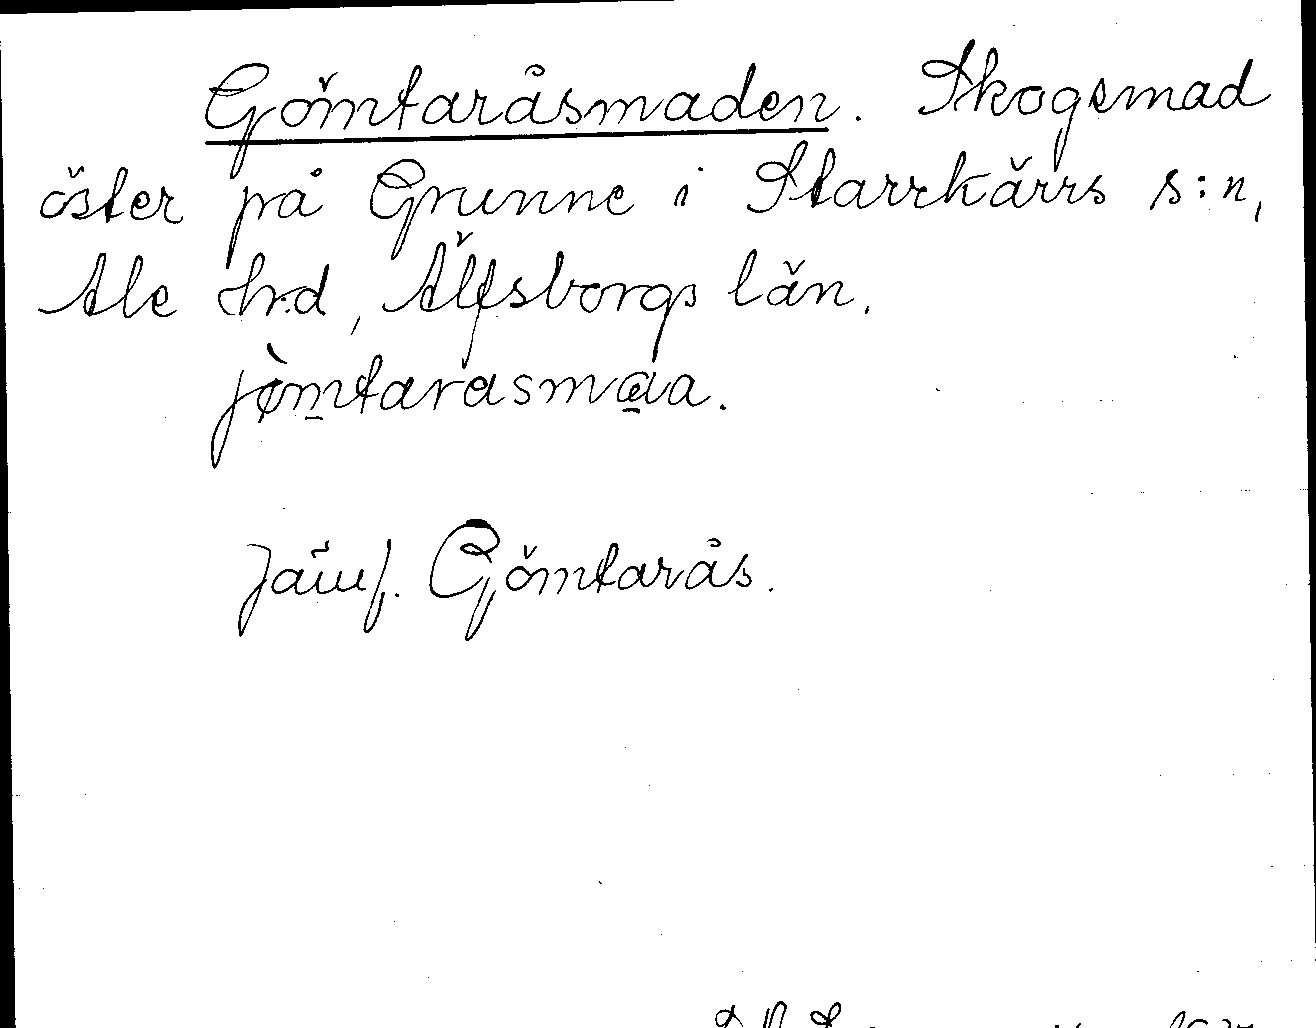 Gömtaråsmaden. Skogsmad
öster på Grunne i Starrkärrs s:n,
Ale hrd, Älfsborgs län.
jø̀m̲tarasma̲a.
Jämf. Gömtarås.